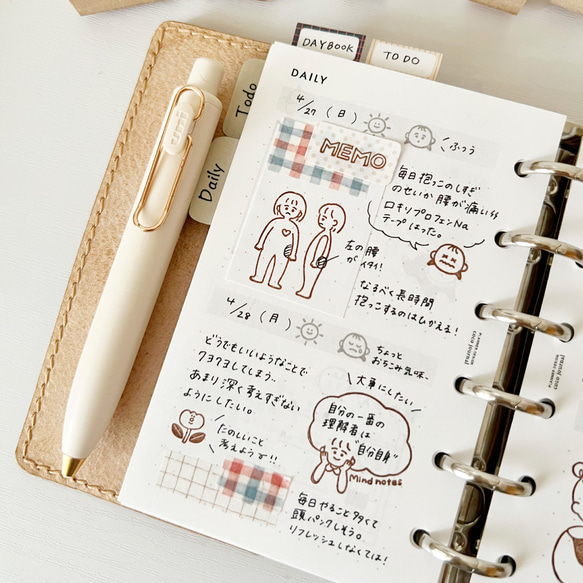 DAYBOOK
TO DO
Todo
Daily
uni
DAILY
4/27 (日)
ふつう
MEMO
毎日抱っこのしすぎ
のせいか腰が痛い
ロキソプロフェンNa
テープはった。
左の腰
が イタイ!
なるべく長時間
抱っこするのはひかえる!
4/28 (月)
ちょっと
おちこみ気味..
どうでもいいようなことで
クヨクヨしてしまう..
あまり深く考えすぎない
ようにしたい。
たのしいこと
考えよう〜!!
大事にしたい
自分の一番の
理解者は
"自分自身"
Mind notes
毎日やること多くて
頭パンクしそう。
リフレッシュしなくては!